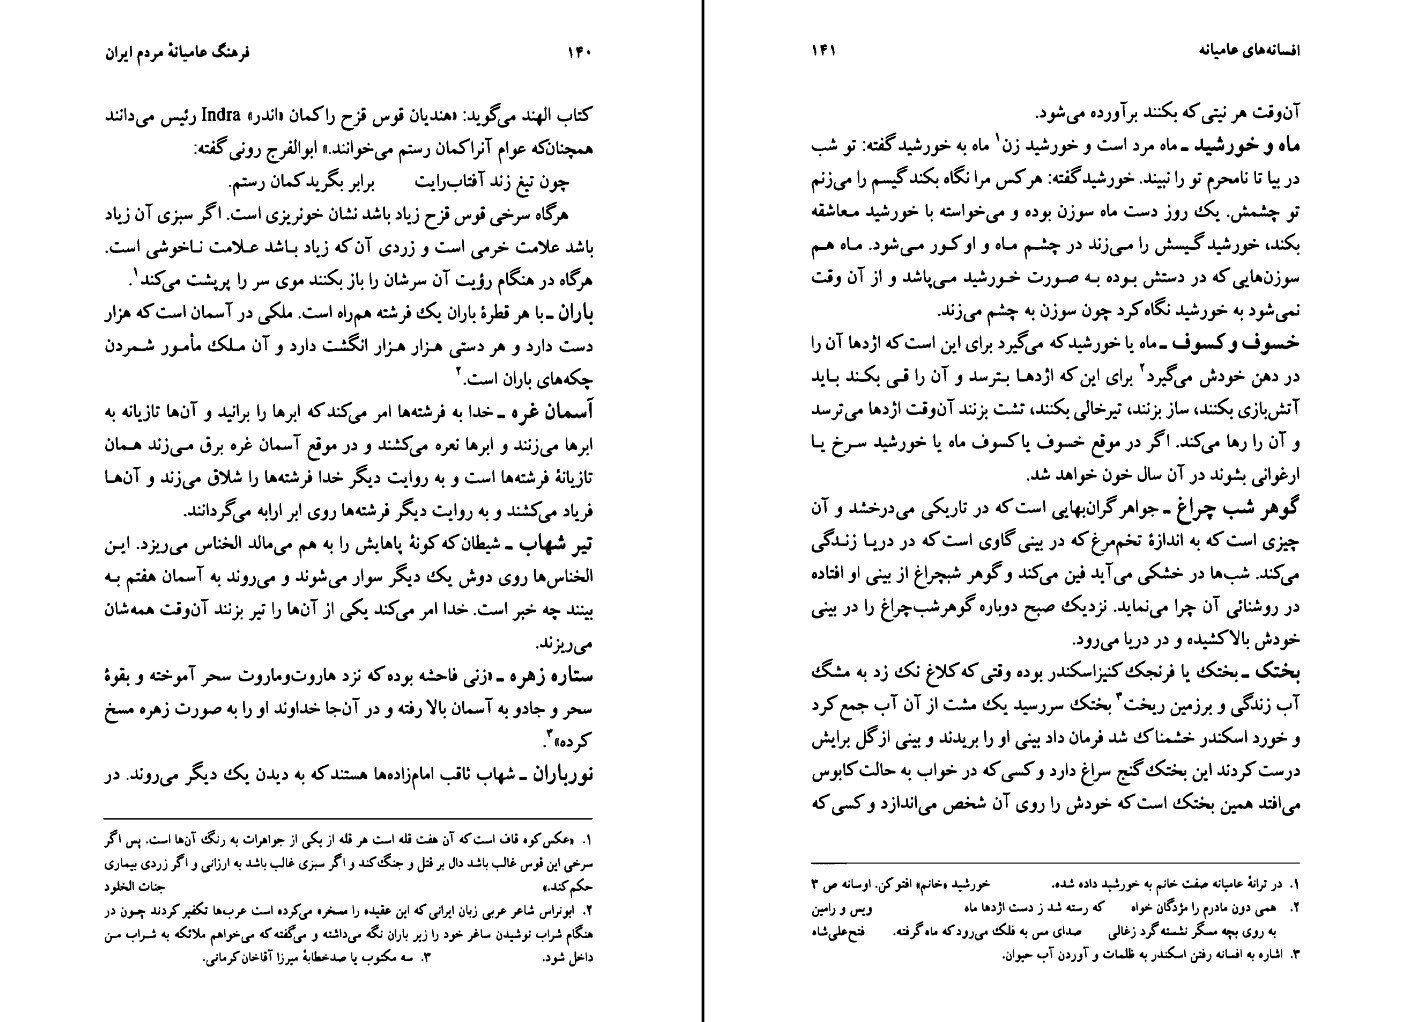 ۱۴۰ فرهنگ عامیانهٔ مردم ایران
کتاب الهند می‌گوید: «هندیان قوس قزح را کمان «اندر» Indra رئیس می‌دانند
همچنان‌که عوام آنرا کمان رستم می‌خوانند.» ابوالفرج رونی گفته:
چون تیغ زند آفتاب‌رایت برابر بگرید کمان رستم.
هرگاه سرخی قوس قزح زیاد باشد نشان خونریزی است. اگر سبزی آن زیاد
باشد علامت خرمی است و زردی آن که زیاد باشد علامت ناخوشی است.
هرگاه در هنگام رؤیت آن سرشان را باز بکنند موی سر را پرپشت می‌کند۱.
باران ـ با هر قطرهٔ باران یك فرشته همراه است. ملکی در آسمان است که هزار
دست دارد و هر دستی هزار هزار انگشت دارد و آن ملك مأمور شمردن
چکه‌های باران است.۲
آسمان غره ـ خدا به فرشته‌ها امر می‌کند که ابرها را برانید و آن‌ها تازیانه به
ابرها می‌زنند و ابرها نعره می‌کشند و در موقع آسمان غره برق می‌زند همان
تازیانهٔ فرشته‌ها است و به روایت دیگر خدا فرشته‌ها را شلاق می‌زند و آن‌ها
فریاد می‌کشند و به روایت دیگر فرشته‌ها روی ابر ارابه می‌گردانند.
تیر شهاب ـ شیطان که کونهٔ پاهایش را به هم می‌مالد الخناس می‌ریزد. این
الخناس‌ها روی دوش یك دیگر سوار می‌شوند و می‌روند به آسمان هفتم به
بینند چه خبر است. خدا امر می‌کند یکی از آن‌ها را تیر بزنند آن‌وقت همه‌شان
می‌ریزند.
ستاره زهره ـ «زنی فاحشه بوده که نزد هاروت‌وماروت سحر آموخته و بقوهٔ
سحر و جادو به آسمان بالا رفته و در آن‌جا خداوند او را به صورت زهره مسخ
کرده»۳.
نورباران ـ شهاب ثاقب امام‌زاده‌ها هستند که به دیدن یك دیگر می‌روند. در
۱. «عکس کوه قاف است که آن هفت قله است هر قله از یکی از جواهرات به رنگ آن‌ها است. پس اگر
سرخی این قوس غالب باشد دال بر قتل و جنگ کند و اگر سبزی غالب باشد به ارزانی و اگر زردی بیماری
حکم کند.» جنات الخلود
۲. ابونراس شاعر عربی زبان ایرانی که این عقیده را مسخره می‌کرده است عرب‌ها تکفیر کردند چون در
هنگام شراب نوشیدن ساغر خود را زیر باران نگه می‌داشته و می‌گفته که می‌خواهم ملائکه به شراب من
داخل شود. ۳. سه مکتوب یا صدخطابهٔ میرزا آقاخان کرمانی.
افسانه‌های عامیانه ۱۴۱
آن‌وقت هر نیتی که بکنند برآورده می‌شود.
ماه و خورشید ـ ماه مرد است و خورشید زن۱ ماه به خورشید گفته: تو شب
در بیا تا نامحرم تو را نبیند. خورشید گفته: هرکس مرا نگاه بکند گیسم را می‌زنم
تو چشمش. یك روز دست ماه سوزن بوده و می‌خواسته با خورشید معاشقه
بکند، خورشید گیسش را می‌زند در چشم ماه و او کور می‌شود. ماه هم
سوزن‌هایی که در دستش بوده به صورت خورشید می‌پاشد و از آن وقت
نمی‌شود به خورشید نگاه کرد چون سوزن به چشم می‌زند.
خسوف و کسوف ـ ماه یا خورشید که می‌گیرد برای این است که اژدها آن را
در دهن خودش می‌گیرد۲ برای این که اژدها بترسد و آن را قی بکند باید
آتش‌بازی بکنند، ساز بزنند، تیرخالی بکنند، تشت بزنند آن‌وقت اژدها می‌ترسد
و آن را رها می‌کند. اگر در موقع خسوف یا کسوف ماه یا خورشید سرخ یا
ارغوانی بشوند در آن سال خون خواهد شد.
گوهر شب چراغ ـ جواهر گران‌بهایی است که در تاریکی می‌درخشد و آن
چیزی است که به اندازهٔ تخم‌مرغ که در بینی گاوی است که در دریا زندگی
می‌کند. شب‌ها در خشکی می‌آید فین می‌کند و گوهر شبچراغ از بینی او افتاده
در روشنائی آن چرا می‌نماید. نزدیك صبح دوباره گوهرشب‌چراغ را در بینی
خودش بالا کشیده و در دریا می‌رود.
بختک ـ بختك یا فرنجك کنیز اسکندر بوده وقتی که کلاغ نك زد به مشگ
آب زندگی و برزمین ریخت۳ بختك سررسید یك مشت از آن آب جمع کرد
و خورد اسکندر خشمناك شد فرمان داد بینی او را بریدند و بینی از گل برایش
درست کردند این بختك گنج سراغ دارد و کسی که در خواب به حالت کابوس
می‌افتد همین بختك است که خودش را روی آن شخص می‌اندازد و کسی که
۱. در ترانهٔ عامیانه صفت خانم به خورشید داده شده. خورشید «خانم» افتو کن. اوسانه ص ۳
۲. همی دون مادرم را مژدگان خواه که رسته شد ز دست اژدها ماه ویس و رامین
به روی بچه مسگر نشسته گرد زغالی صدای مس به فلک می‌رود که ماه گرفته. فتح‌علی‌شاه
۳. اشاره به افسانه رفتن اسکندر به ظلمات و آوردن آب حیوان.